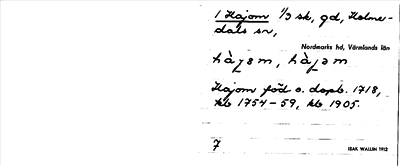 1 Hajom 1/3 sk, gd, Holme-
dals sn,
Nordmarks hd, Värmlands län
hàjɛm, hàjəm
Hajom föd o. dopb. 1718,
kb 1754-59, kb 1905.
7 ISAK WALLIN 1912